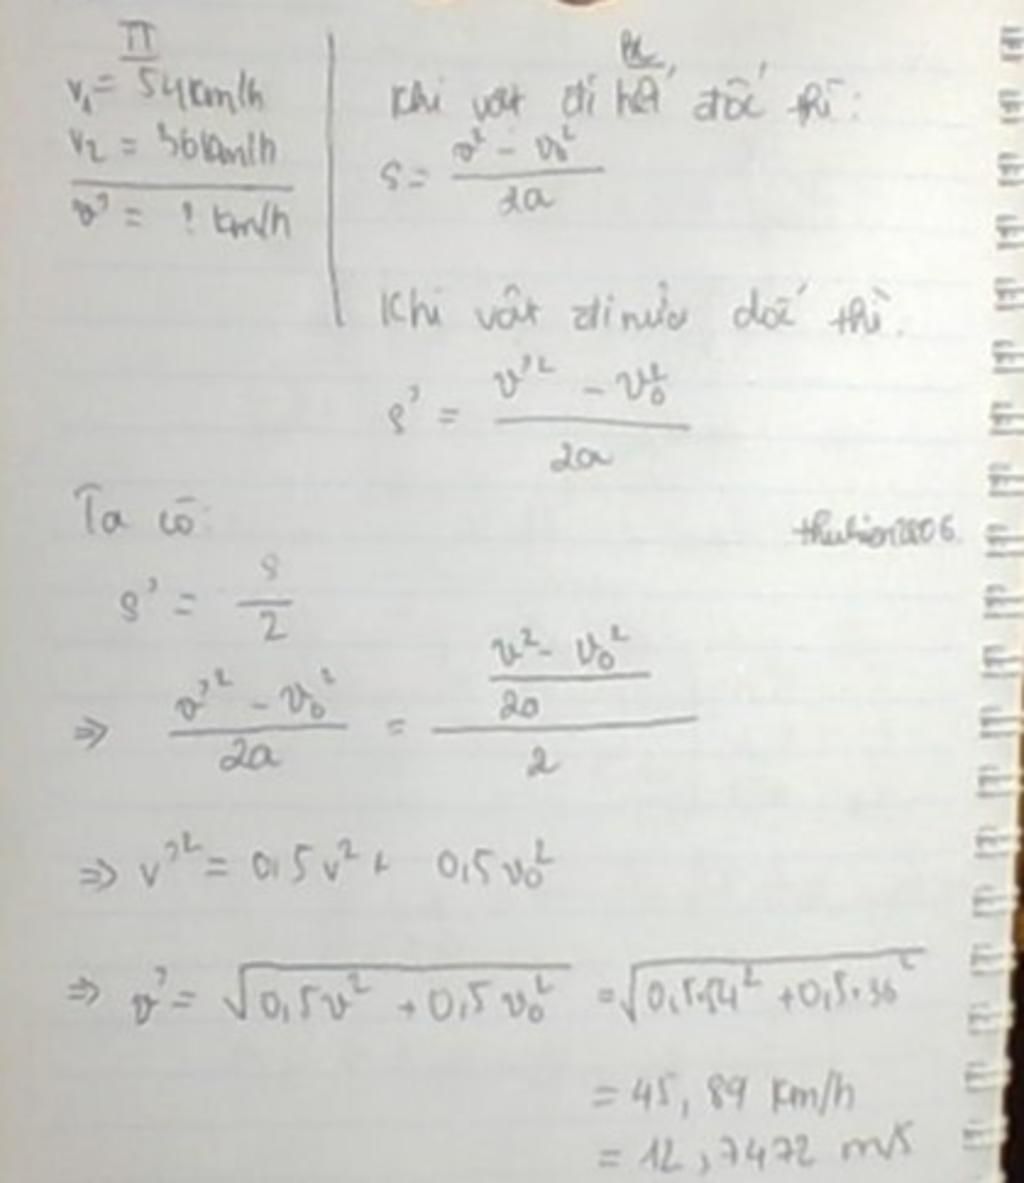 TT
v₁ = 54km/h
v₂ = 36km/h
v' = ? km/h
Khi vật đi hết dốc thì:
s = (v² - v₀²) / 2a
Khi vật đi nửa dốc thì.
s' = (v'² - v₀²) / 2a
Ta có:
thuhien2806.
s' = s / 2
=> (v'² - v₀²) / 2a = ((v² - v₀²) / 2a) / 2
=> v'² = 0,5v² + 0,5v₀²
=> v' = √(0,5v² + 0,5v₀²) = √(0,5.54² + 0,5.36²)
= 45,89 km/h
= 12,7472 m/s